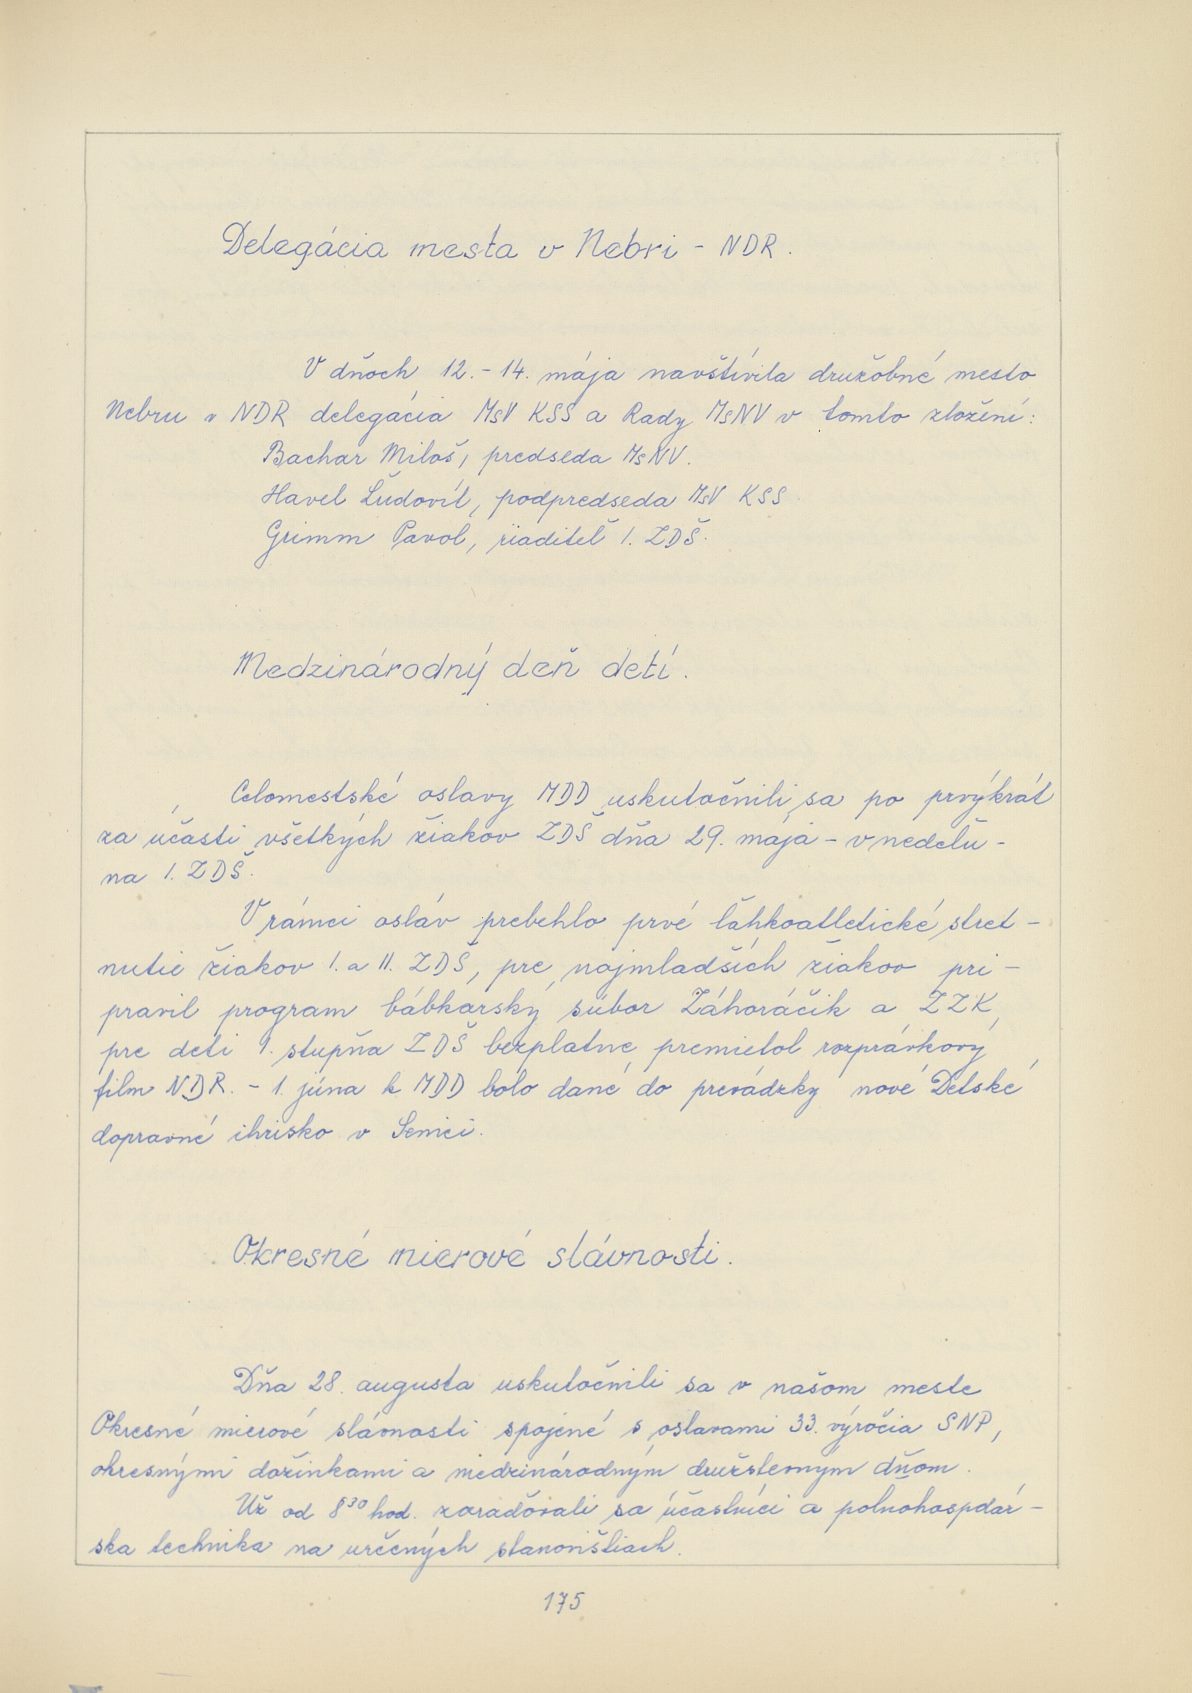 Delegácia mesta v Nebri - NDR.
V dňoch 12.-14. mája navštívila družobné mesto
Nebru v NDR delegácia MsV KSS a Rady MsNV v tomto zložení:
Bachar Miloš, predseda MsNV.
Havel Ľudovít, podpredseda MsV KSS.
Grimm Pavol, riaditeľ 1. ZDŠ.
Medzinárodný deň detí.
Celomestské oslavy MDD uskutočnili sa po prvýkrát
za účasti všetkých žiakov ZDŠ dňa 29. mája - v nedeľu -
na 1. ZDŠ.
V rámci osláv prebehlo prvé ľahkoatletické stret-
nutie žiakov I. a II. ZDŠ, pre najmladších žiakov pri-
pravil program bábkarský súbor Záhoráčik a ZZK,
pre deti 1. stupňa ZDŠ bezplatne premietol rozprávkový
film NDR. - 1. júna k MDD bolo dané do prevádzky nové Detské
dopravné ihrisko v Senici.
Okresné mierové slávnosti.
Dňa 28. augusta uskutočnili sa v našom meste
Okresné mierové slávnosti spojené s oslavami 33. výročia SNP,
okresnými dožinkami a medzinárodným družstevným dňom.
Už od 8³⁰ hod. zoraďovali sa účastníci a poľnohospdár-
ska technika na určených stanovištiach.
175